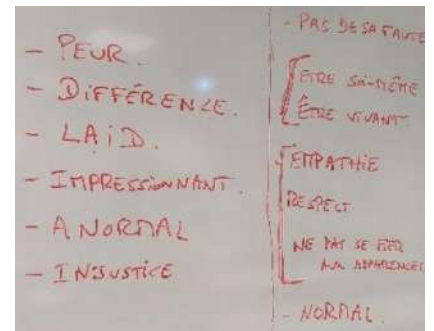 - PEUR.
- DIFFÉRENCE.
- LAID.
- IMPRESSIONNANT.
- ANORMAL
- INJUSTICE
- PAS DE SA FAUTE
ÊTRE SOI-MÊME
ÊTRE VIVANT.
- EMPATHIE
RESPECT
NE PAS SE FIER
AUX APPARENCES
- NORMAL.